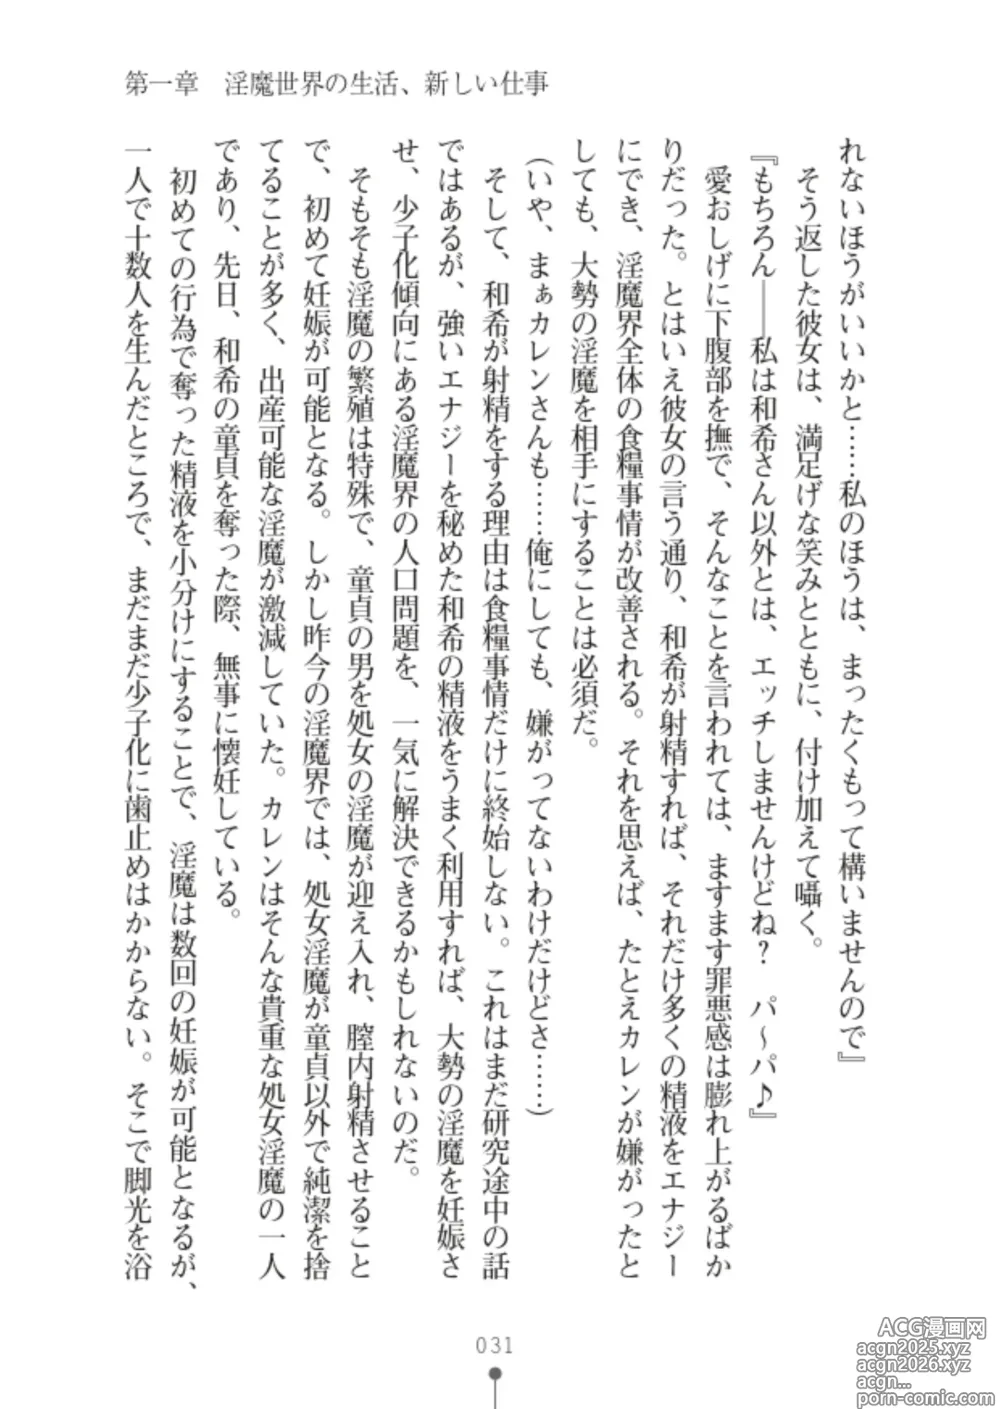 第一章　淫魔世界の生活、新しい仕事
れないほうがいいかと……私のほうは、まったくもって構いませんので』
そう返した彼女は、満足げな笑みとともに、付け加えて囁く。
『もちろん――私は和希さん以外とは、エッチしませんけどね？　パ～パ♪』
愛おしげに下腹部を撫で、そんなことを言われては、ますます罪悪感は膨れ上がるばか
りだった。とはいえ彼女の言う通り、和希が射精すれば、それだけ多くの精液をエナジー
にでき、淫魔界全体の食糧事情が改善される。それを思えば、たとえカレンが嫌がったと
しても、大勢の淫魔を相手にすることは必須だ。
（いや、まぁカレンさんも……俺にしても、嫌がってないわけだけどさ……）
そして、和希が射精をする理由は食糧事情だけに終始しない。これはまだ研究途中の話
ではあるが、強いエナジーを秘めた和希の精液をうまく利用すれば、大勢の淫魔を妊娠さ
せ、少子化傾向にある淫魔界の人口問題を、一気に解決できるかもしれないのだ。
そもそも淫魔の繁殖は特殊で、童貞の男を処女の淫魔が迎え入れ、膣内射精させること
で、初めて妊娠が可能となる。しかし昨今の淫魔界では、処女淫魔が童貞以外で純潔を捨
てることが多く、出産可能な淫魔が激減していた。カレンはそんな貴重な処女淫魔の一人
であり、先日、和希の童貞を奪った際、無事に懐妊している。
初めての行為で奪った精液を小分けにすることで、淫魔は数回の妊娠が可能となるが、
一人で十数人を生んだところで、まだまだ少子化に歯止めはかからない。そこで脚光を浴
031
ACG漫画网
acgn2025.xyz
acgn2026.xyz
acgn...
porn-comic.com